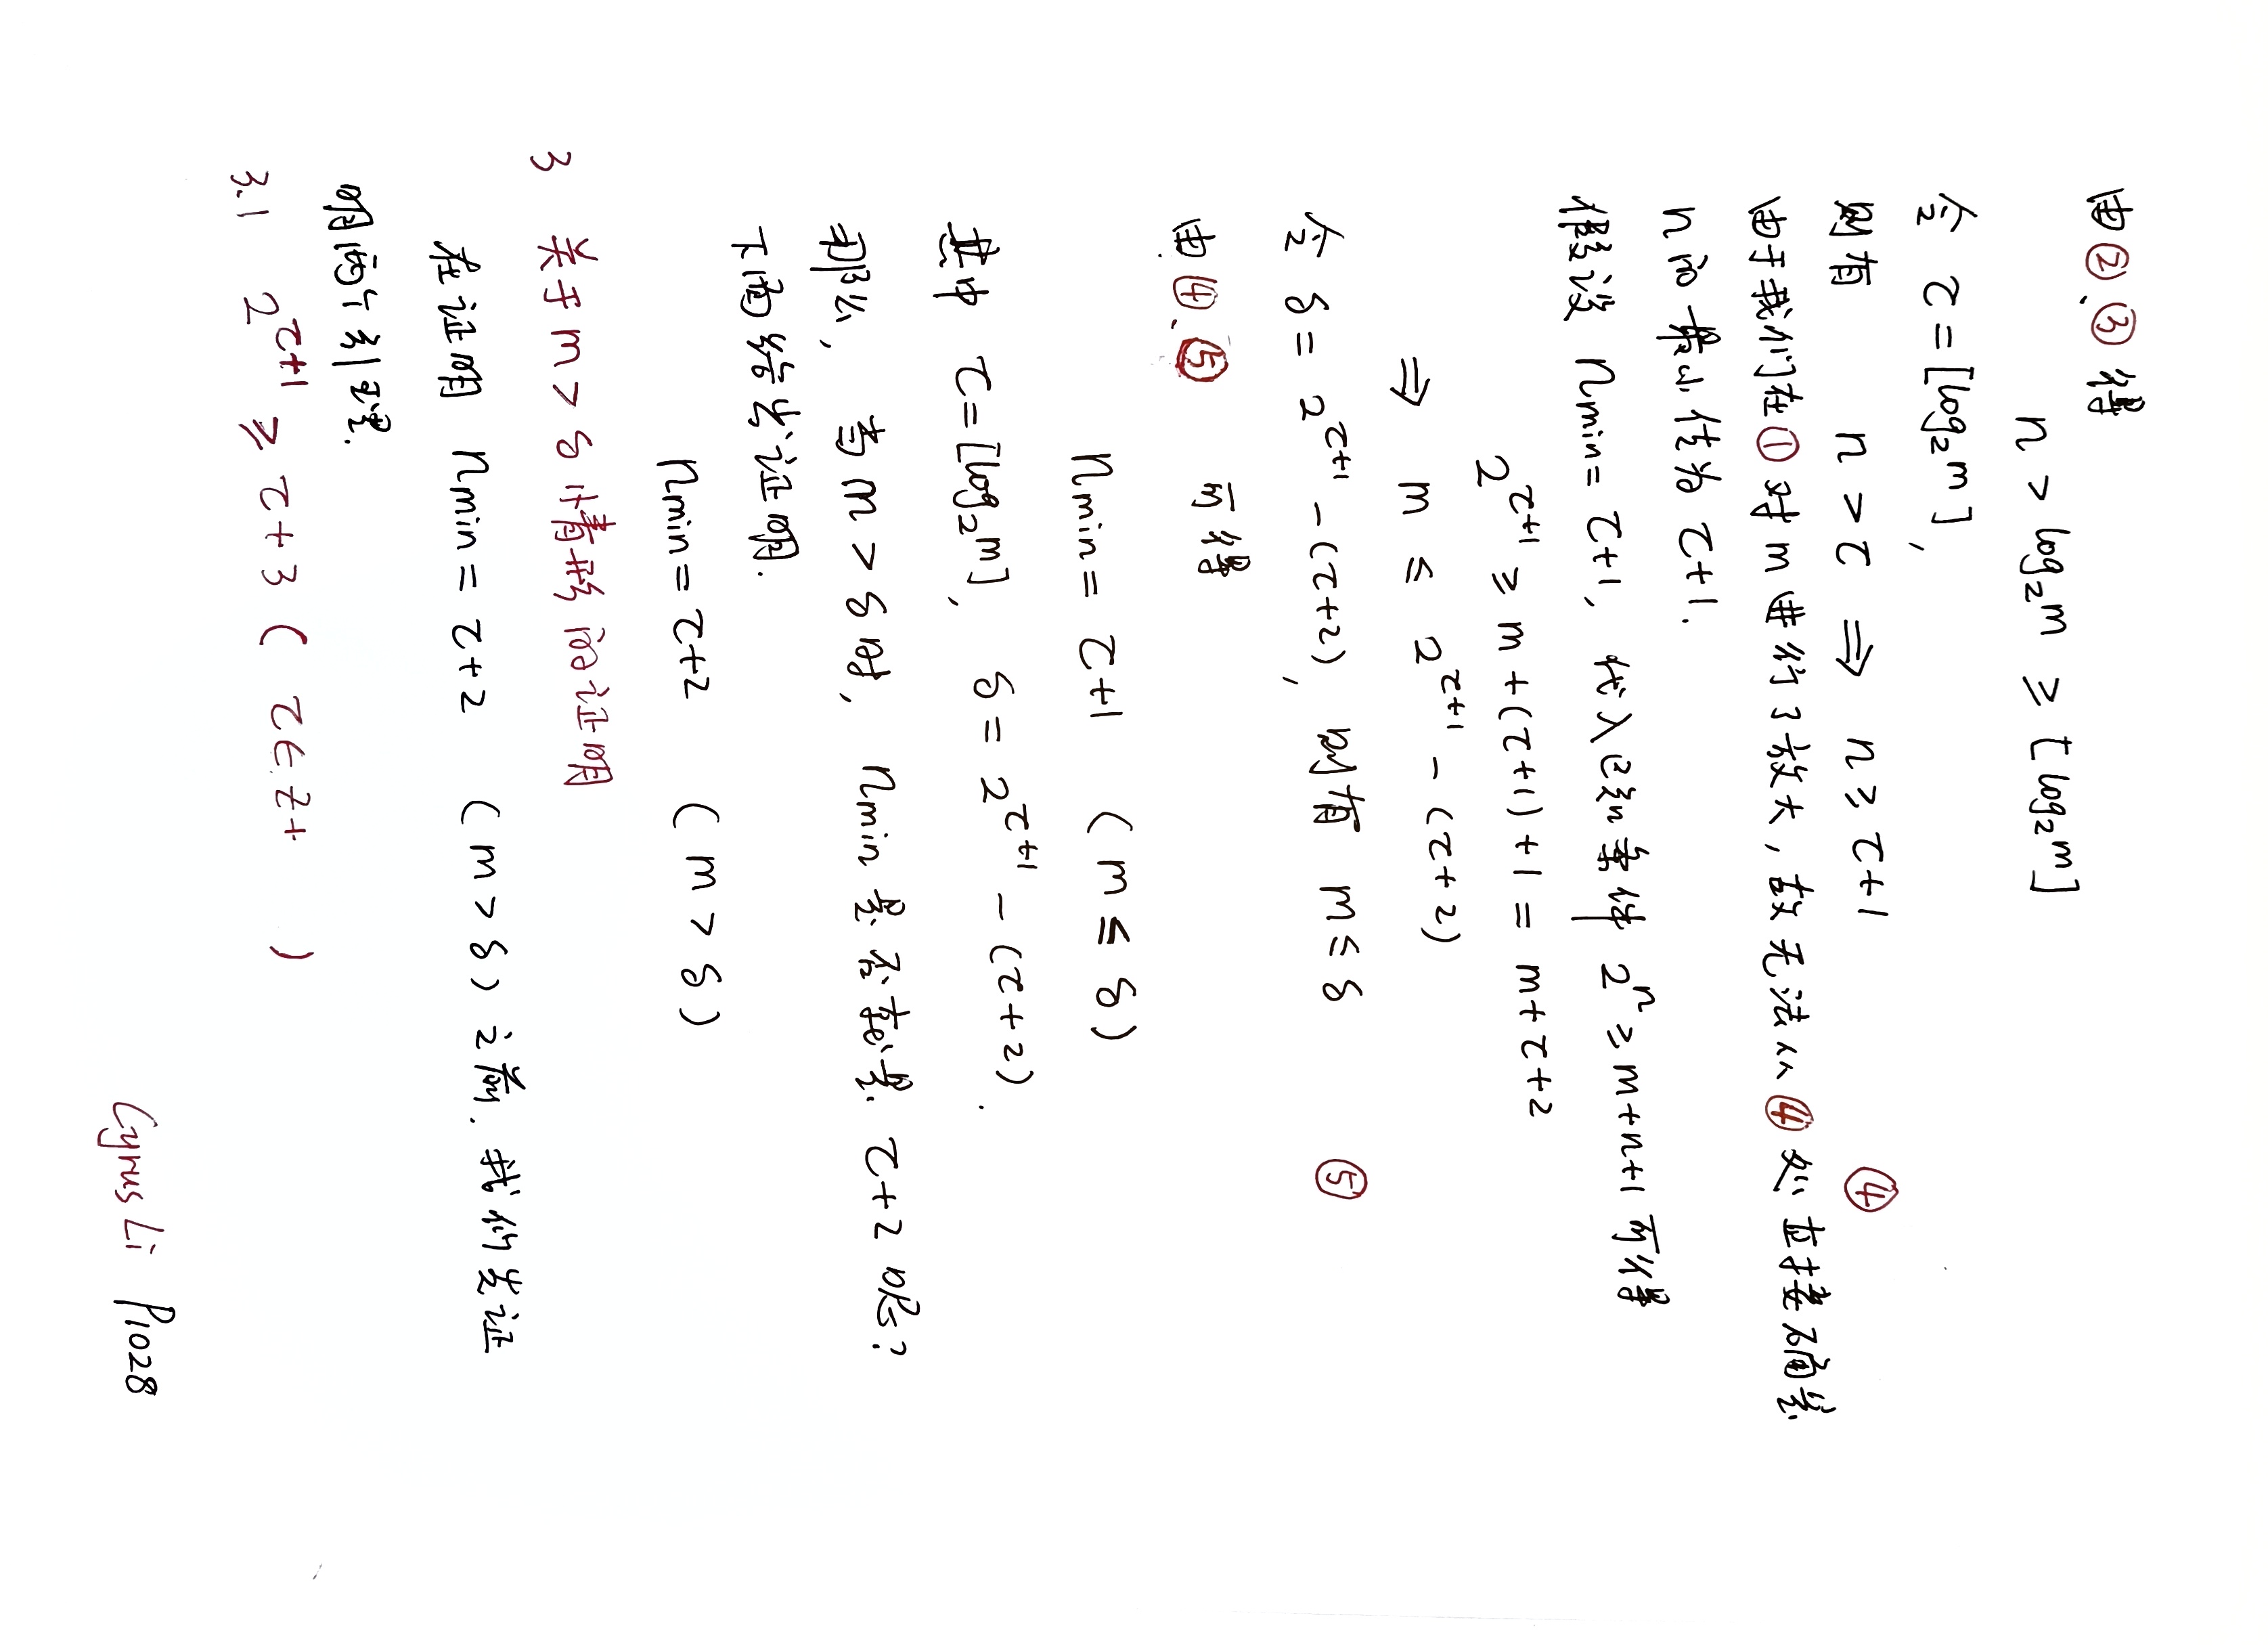 由②、③得
n > log₂m ≥ [log₂m]
令 τ = [log₂m],
则有 n > τ ⇒ n ≥ τ+1 ④
由于我们在①对m进行了放大,故无法从④处直接确定
n的最小值为 τ+1.
假设 nmin = τ+1, 代入已知条件 2ⁿ ≥ m+n+1 可得
2^τ+1 ≥ m+(τ+1)+1 = m+τ+2
⇒ m ≤ 2^τ+1 -(τ+2)
令 δ = 2^τ+1 -(τ+2), 则有 m ≤ δ ⑤
由④、⑤ 可得
nmin = τ+1 (m ≤ δ)
其中 τ=[log₂m], δ = 2^τ+1 -(τ+2).
那么, 当 m > δ 时, nmin 是否就是 τ+2 呢?
下面给出证明.
nmin = τ+2 (m > δ)
3 关于 m > δ 情形的证明
在证明 nmin = τ+2 (m > δ) 之前. 我们先证
明两个引理.
3.1 2^τ+1 ≥ τ+3 ( τ∈Z+ )
Cyrus Li P1028